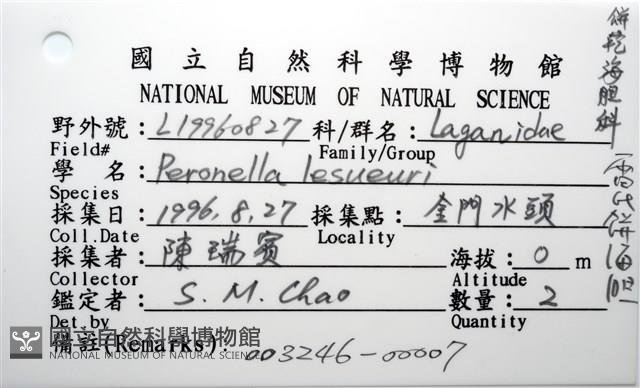 國立自然科學博物館
NATIONAL MUSEUM OF NATURAL SCIENCE
野外號：L19960827 科/群名：Laganidae
Field# Family/Group
學名：Peronella lesueuri
Species
採集日：1996,8,27 採集點：金門水頭
Coll.Date Locality
採集者：陳瑞賓 海拔：0 m
Collector Altitude
鑑定者：S. M. Chao 數量：2
Det.by Quantity
備註(Remarks)：003246-00007
國立自然科學博物館
NATIONAL MUSEUM OF NATURAL SCIENCE
餅乾海胆科
雷氏餅海胆